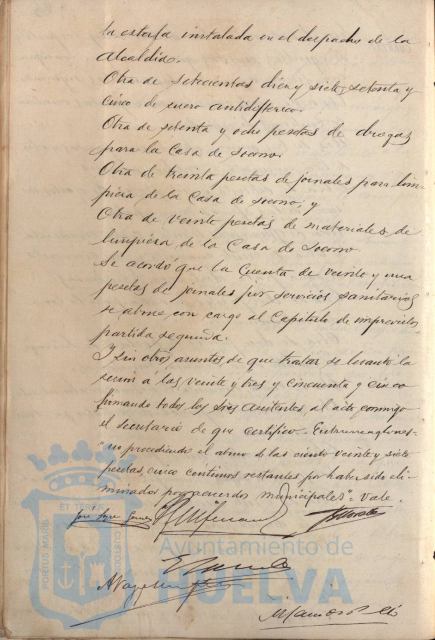 la estufa instalada en el despacho de la
Alcaldía.
Otra de setecientas diez y siete, setenta y
cinco de suero antidiftérico.
Otra de setenta y ocho pesetas de drogas
para la Casa de Socorro.
Otra de treinta pesetas de jornales para lim-
pieza de la Casa de Socorro, y
Otra de veinte pesetas de materiales de
limpieza de la Casa de Socorro
Se acordó que la Cuenta de veinte y una
pesetas de jornales por servicios sanitarios
se abone con cargo al Capítulo de imprevistos
partida segunda.
Y sin otros asuntos de que tratar se levantó la
sesión á las veinte y tres y cincuenta y cinco
firmando todos los Sres asistentes al acto conmigo
el secretario de que certifico. Entrerrenglones-
"no procediendo el abono de las ciento veinte y siete
pesetas, cinco centimos restantes por haber sido eli-
minados por acuerdos municipales". Vale.
Ayuntamiento de
HUELVA
PORTUS MARIS ET TERRE CUSTODIA